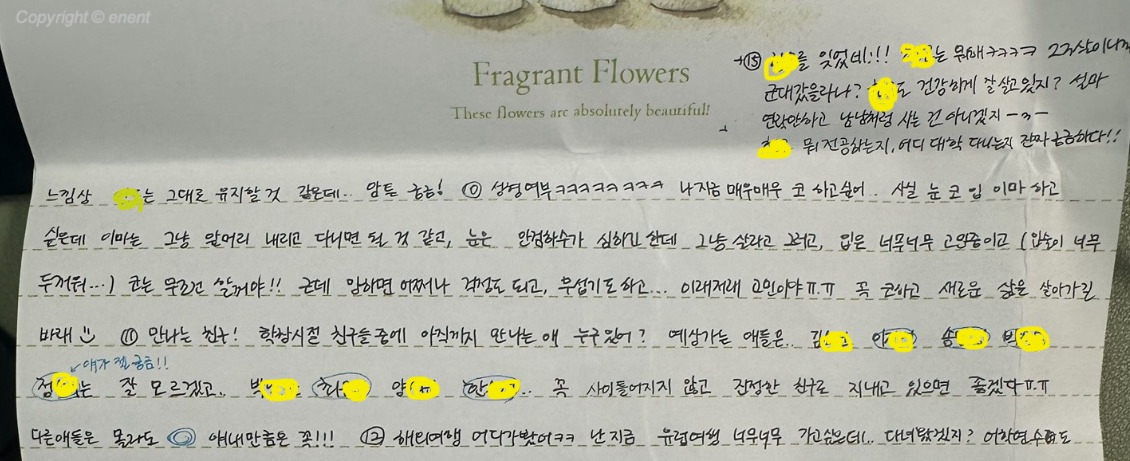 Copyright © enent
Fragrant Flowers
These flowers are absolutely beautiful!
→⑮ 를 잊었네!!! 는 뭐해ㅋㅋㅋㅋ 23살이니까
군대갔을라나? 도 건강하게 잘 살고있지? 설마
연락안하고 남남처럼 사는 건 아니겠지ㅡㅡ
뭐 전공하는지, 어디 대학 다니는지 진짜 궁금하다!!
느낌상 는 그대로 유지할 것 같은데.. 암튼 궁금! ⑩ 성형여부ㅋㅋㅋㅋㅋㅋㅋ 나 지금 매우매우 코 하고싶어. 사실 눈 코 입 이마 하고
싶은데 이마는 그냥 앞머리 내리고 다니면 될 것 같고, 눈은 안검하수가 심하긴 한데 그냥 살라고 그러고, 입은 너무너무 고민중이고 (입술이 너무
두꺼워...) 코는 무조건 할꺼야!! 근데 말하면 어쩌나 걱정도 되고, 무섭기도 하고... 이래저래 고민이야ㅠㅠ 꼭 코하고 새로운 삶을 살아가길
바래 ⑪ 만나는 친구! 학창시절 친구들 중에 아직까지 만나는 애 누구있어? 예상가는 애들은.. 김 송 박
↙얘가 젤 궁금!!
정 는 잘 모르겠고.. 박 양 한 .. 꼭 사이 틀어지지 않고 진정한 친구로 지내고 있으면 좋겠다ㅠㅠ
다른애들은 몰라도 얘내만큼은 꼭!!! ⑫ 해외여행 어디가봤어ㅋㅋ 난 지금 유럽여행 너무너무 가고싶은데.. 다녀왔겠지? 어학연수도